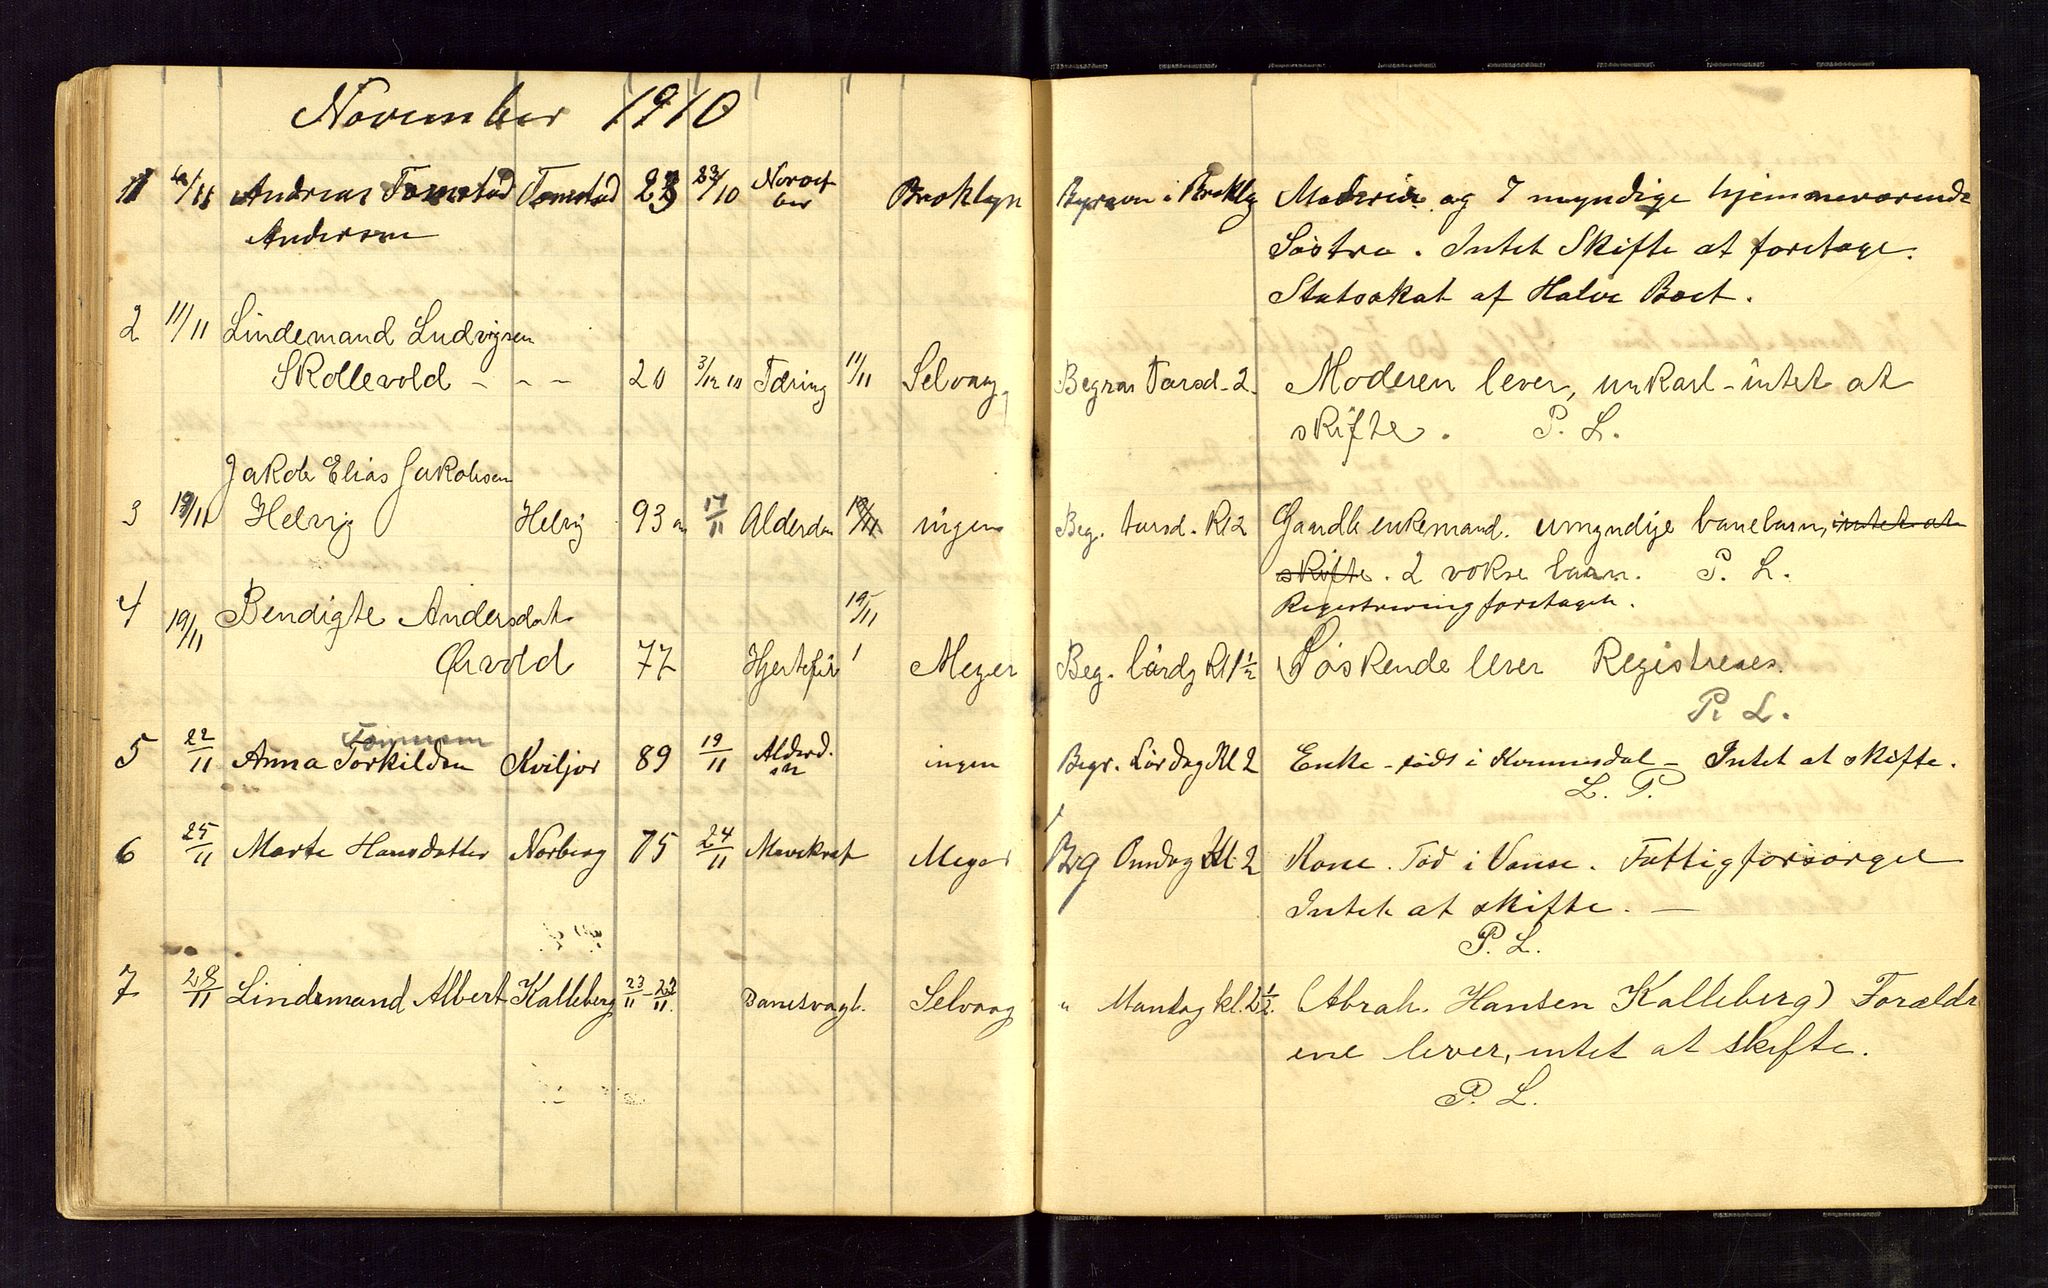 November 1910
1 6/11 Andreas Tomstad Tomstad 23 23/10 Begraven i Moderen og 7 myndige hjemmeværende
Andersen
Søstre. Intet Skifte at foretage.
Statsakat af Halve Boet.
2 11/11 Lindemand Ludvigsen
Skollevold - - - 20 3/12 10 Tæring 11/11 Selvaag Begrav Torsd. 2. Moderen lever, unkarl - intet at
skifte. P. L.
Jakob Elias Jakobsen
3 19/11 Helvig Helvig 93 17/11 Alderdom ingen Beg. torsd. Kl 2 Gaardb. enkemand. umyndige banebarn, intet at
skifte. 2 vokse barn. P. L.
Registrering foretages.
4 19/11 Bendigte Andersdat. 19/11
Ørvold 77 Meyer Beg. lördg Kl 1 1/2 Søskende lever Registreres.
P. L.
Tönnesen
5 22/11 Anna Torkildsen Kviljor 89 19/11 Alderd. ingen Begr. Lördag Kl 2 Enke - født i - Intet at skifte.
L. P.
6 25/11 Marte Hansdatter Norberg 75 24/11 Mavekræft Meyer Beg Onsdag Kl. 2 Kone. Død i Vanse. Fattigforsørget
Intet at skifte. —
P. L.
7 28/11 Lindemand Albert Kalleberg 23/11 23/11. Selvaag " Mandag kl. 2 1/2. (Abrah. Hansen Kalleberg) Foreldr
ene lever, intet at skifte.
P. L.